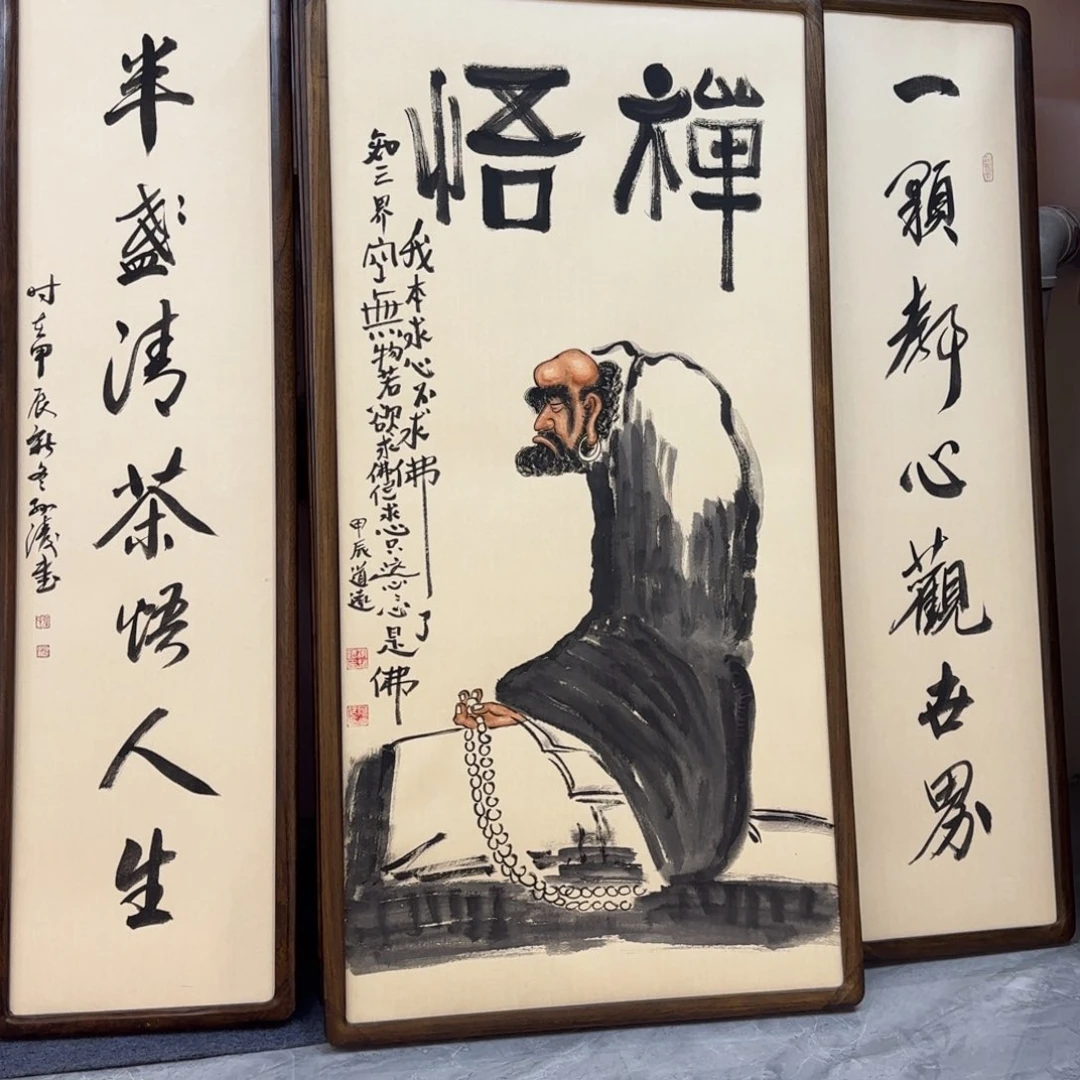 一顆静心觀世界
禪悟
我本求心不求佛了
知三界空無物若欲求佛但求心只這心心是佛
甲辰道遠
半盏清茶悟人生
时在甲辰